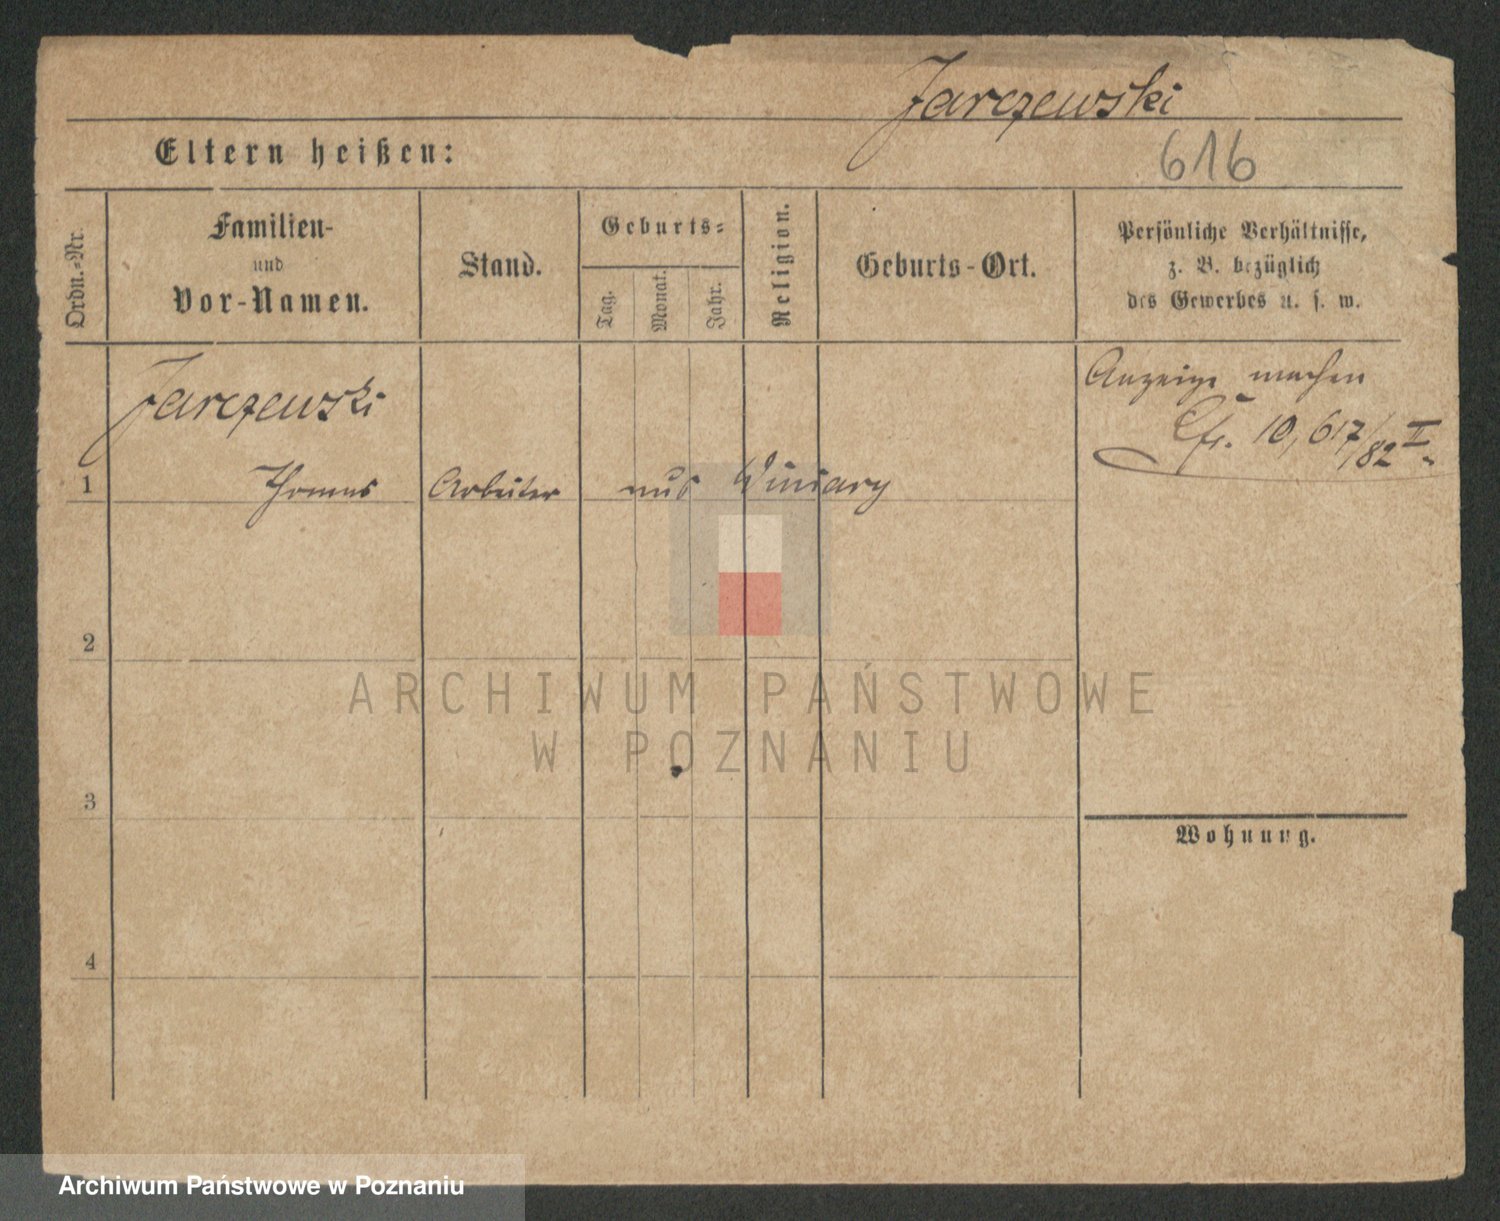 Jarczewski
Eltern heißen:
616
Ordn.-Nr.
Familien-
und
Vor-Namen.
Stand.
Geburts-
Tag.
Monat.
Jahr.
Religion.
Geburts-Ort.
Persönliche Verhältnisse,
z. B. bezüglich
des Gewerbes u. s. w.
Jarczewski
Anzeige machen
10,617/82 II
1
Thomas Arbeiter aus Winiary
2
ARCHIWUM PAŃSTWOWE
W POZNANIU
3
Wohnung.
4
Archiwum Państwowe w Poznaniu